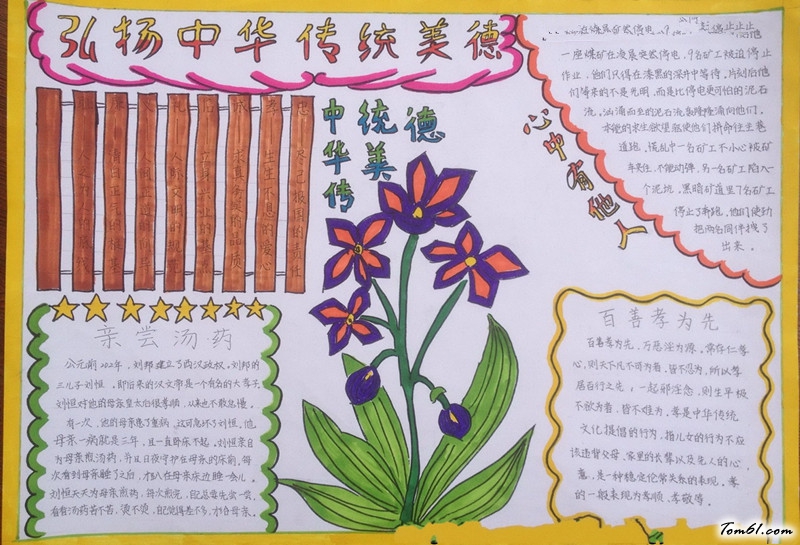 弘扬中华传统美德
中华传
统美
德
心中有他人
一座煤矿在凌晨突然停电，9名矿工被迫停止
作业，他们只得在漆黑的深井中等待。片刻后他
们等来的不是光明，而是比停电更可怕的泥石
流。汹涌而至的泥石流轰隆隆涌向他们。
本能的求生欲望驱使他们拼命往主巷
道跑，慌乱中一名矿工不小心被矿
车夹住，不能动弹，另一名矿工陷入一
个泥坑，黑暗矿道里7名矿工
停止了奔跑，他们使劲
把两名同伴拽了
出来。
亲尝汤药
公元前202年，刘邦建立了西汉政权，刘邦的
三儿子刘恒，即后来的汉文帝是一个有名的大孝子，
刘恒对他的母亲皇太后很孝顺，从来也不敢怠慢。
有一次，他的母亲患了重病，这可急坏了刘恒，他
母亲一病就是三年，且一直卧床不起，刘恒亲自
为母亲煎汤药，并且日夜守护在母亲的床前，每
次看到母亲睡了之后，才趴在母亲床边睡一会儿。
刘恒天天为母亲煎药，每次煎完，自己总要先尝一尝，
看看汤药苦不苦，烫不烫，自己觉得差不多，才给母亲。
百善孝为先
百善孝为先，万恶淫为源，常存仁孝
心，则天下凡不可为者，皆不忍为，所以孝
居百行之先；一起邪淫念，则生平极
不欲为者，皆不难为，孝是中华传统
文化提倡的行为，指儿女的行为不应
该违背父母、家里的长辈以及先人的心
意，是一种稳定伦常关系的表现。孝
的一般表现为孝顺、孝敬等。
Tom61.com